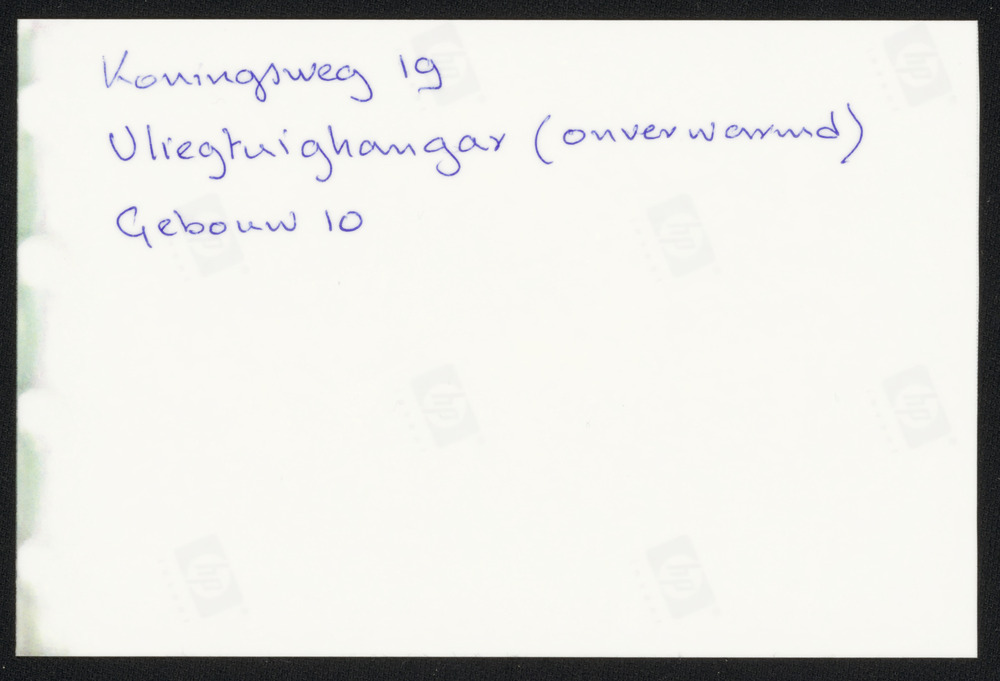 Koningsweg 19
Vliegtuighangar (onverwarmd)
Gebouw 10